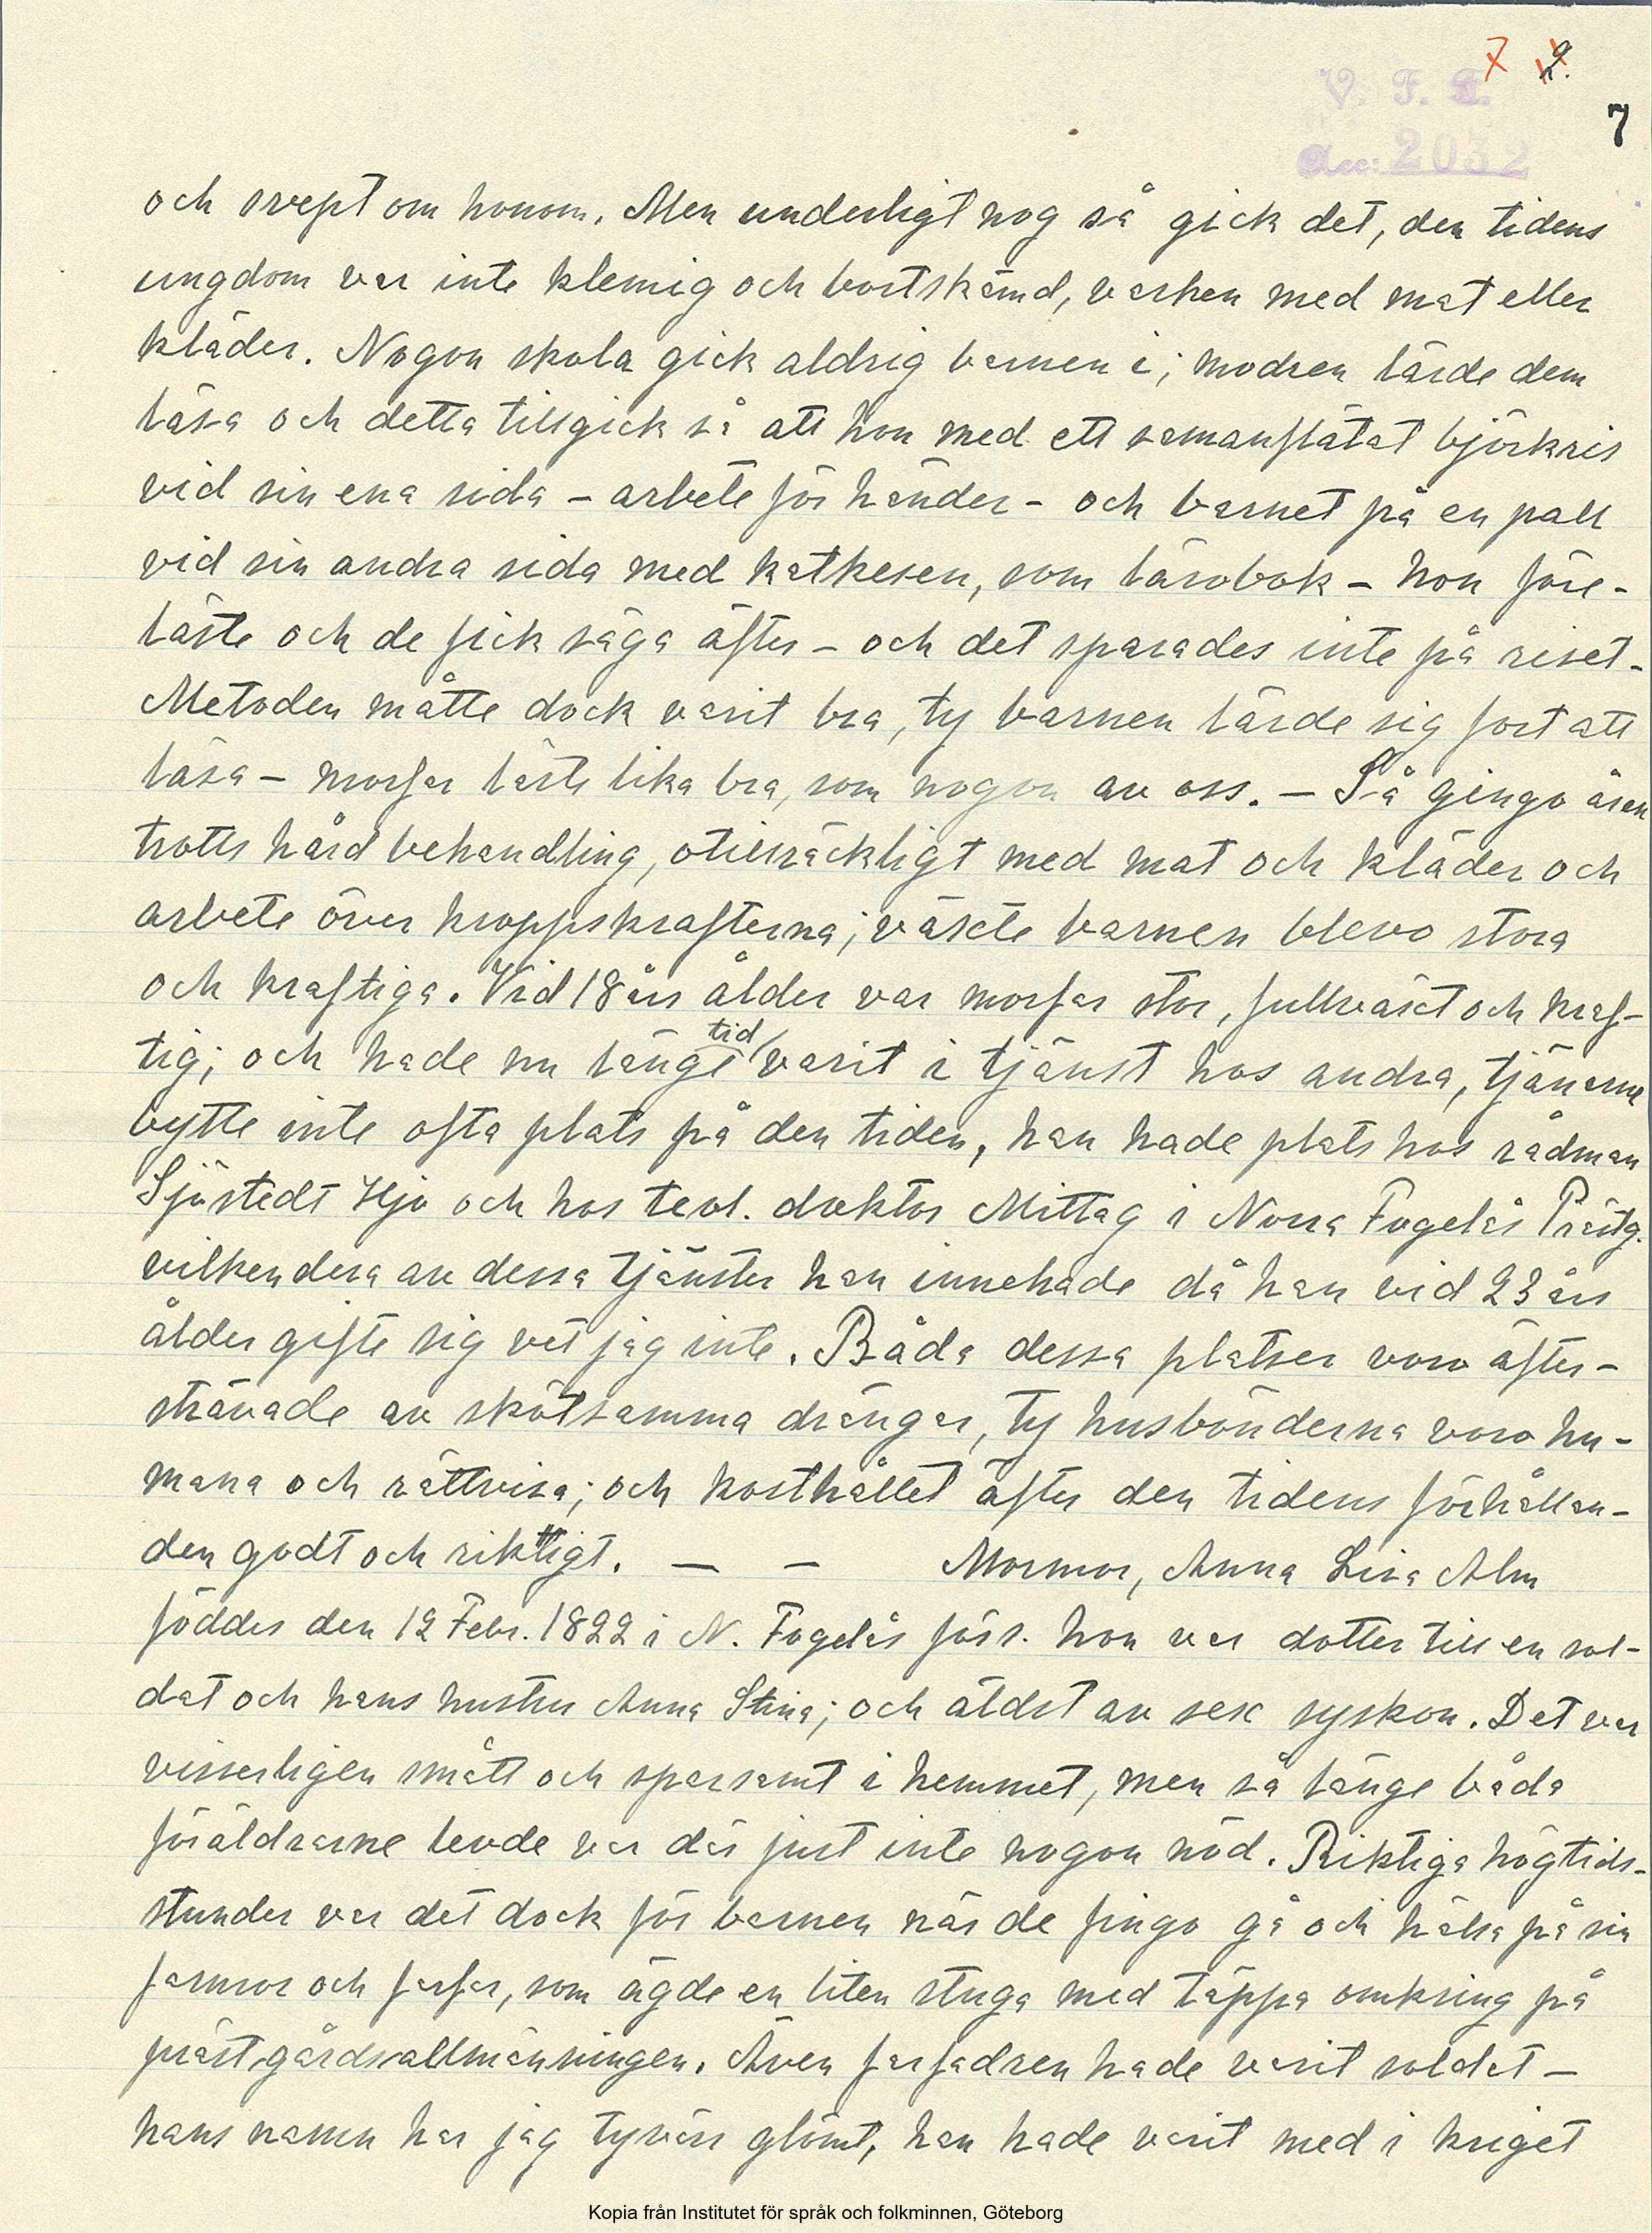 7 2.
V. F. F.
7
Acc: 2032
och svept om honom. Men underligt nog så gick det, den tidens
ungdom var inte klemig och bortskämd, varken med mat eller
kläder. Nogon skola gick aldrig barnen i; modren lärde dem
läsa och detta tillgick så att hon med ett samanflätat björkris
vid sin ena sida – arbete för händer – och barnet på en pall
vid sin andra sida med katkesen, som lärobok – hon före-
läste och de fick säga äfter – och det sparades inte på riset.
Metoden måtte dock varit bra, ty barnen lärde sig fort att
läsa – morfar läste lika bra, som nogon av oss. – Så gingo åren
trotts hård behandling, otillräckligt med mat och kläder och
arbete över kroppskrafterna; växte barnen blevo stora
och kraftiga. Vid 18 års ålder var morfar stor, fullväxt och kraf-
tig; och hade nu länge tid varit i tjänst hos andra, tjänarne
bytte inte ofta plats på den tiden, han hade plats hos rådman
Sjöstedt Hjo och hos teol. doktor Mittag i Norra Fogelås Prästg.
vilkendera av dessa tjänster han innehade då han vid 23 års
ålder gifte sig vet jag inte. Båda dessa platser voro äfter-
strävade av skötsamma drängar, ty husbönderna voro hu-
mana och rättvisa; och kosthållet äfter den tidens förhållan-
den godt och riktigt. — – Mormor, Anna Lisa Alm
föddes den 12 Febr. 1822 i N. Fogelås förs. hon var dotter till en sol-
dat och hans hustru Anna Stina; och äldst av sex syskon. Det var
visserligen smått och sparsamt i hemmet, men så länge båda
föräldrarne levde var där just inte nogon nöd. Riktiga högtids-
stunder var det dock för barnen när de fingo gå och hälsa på sin
farmor och farfar, som ägde en liten stuga med täppa omkring på
prästgårdsallmänningen. Även farfadren hade varit soldat –
hans namn har jag tyvärr glömt, han hade varit med i kriget
Kopia från Institutet för språk och folkminnen, Göteborg